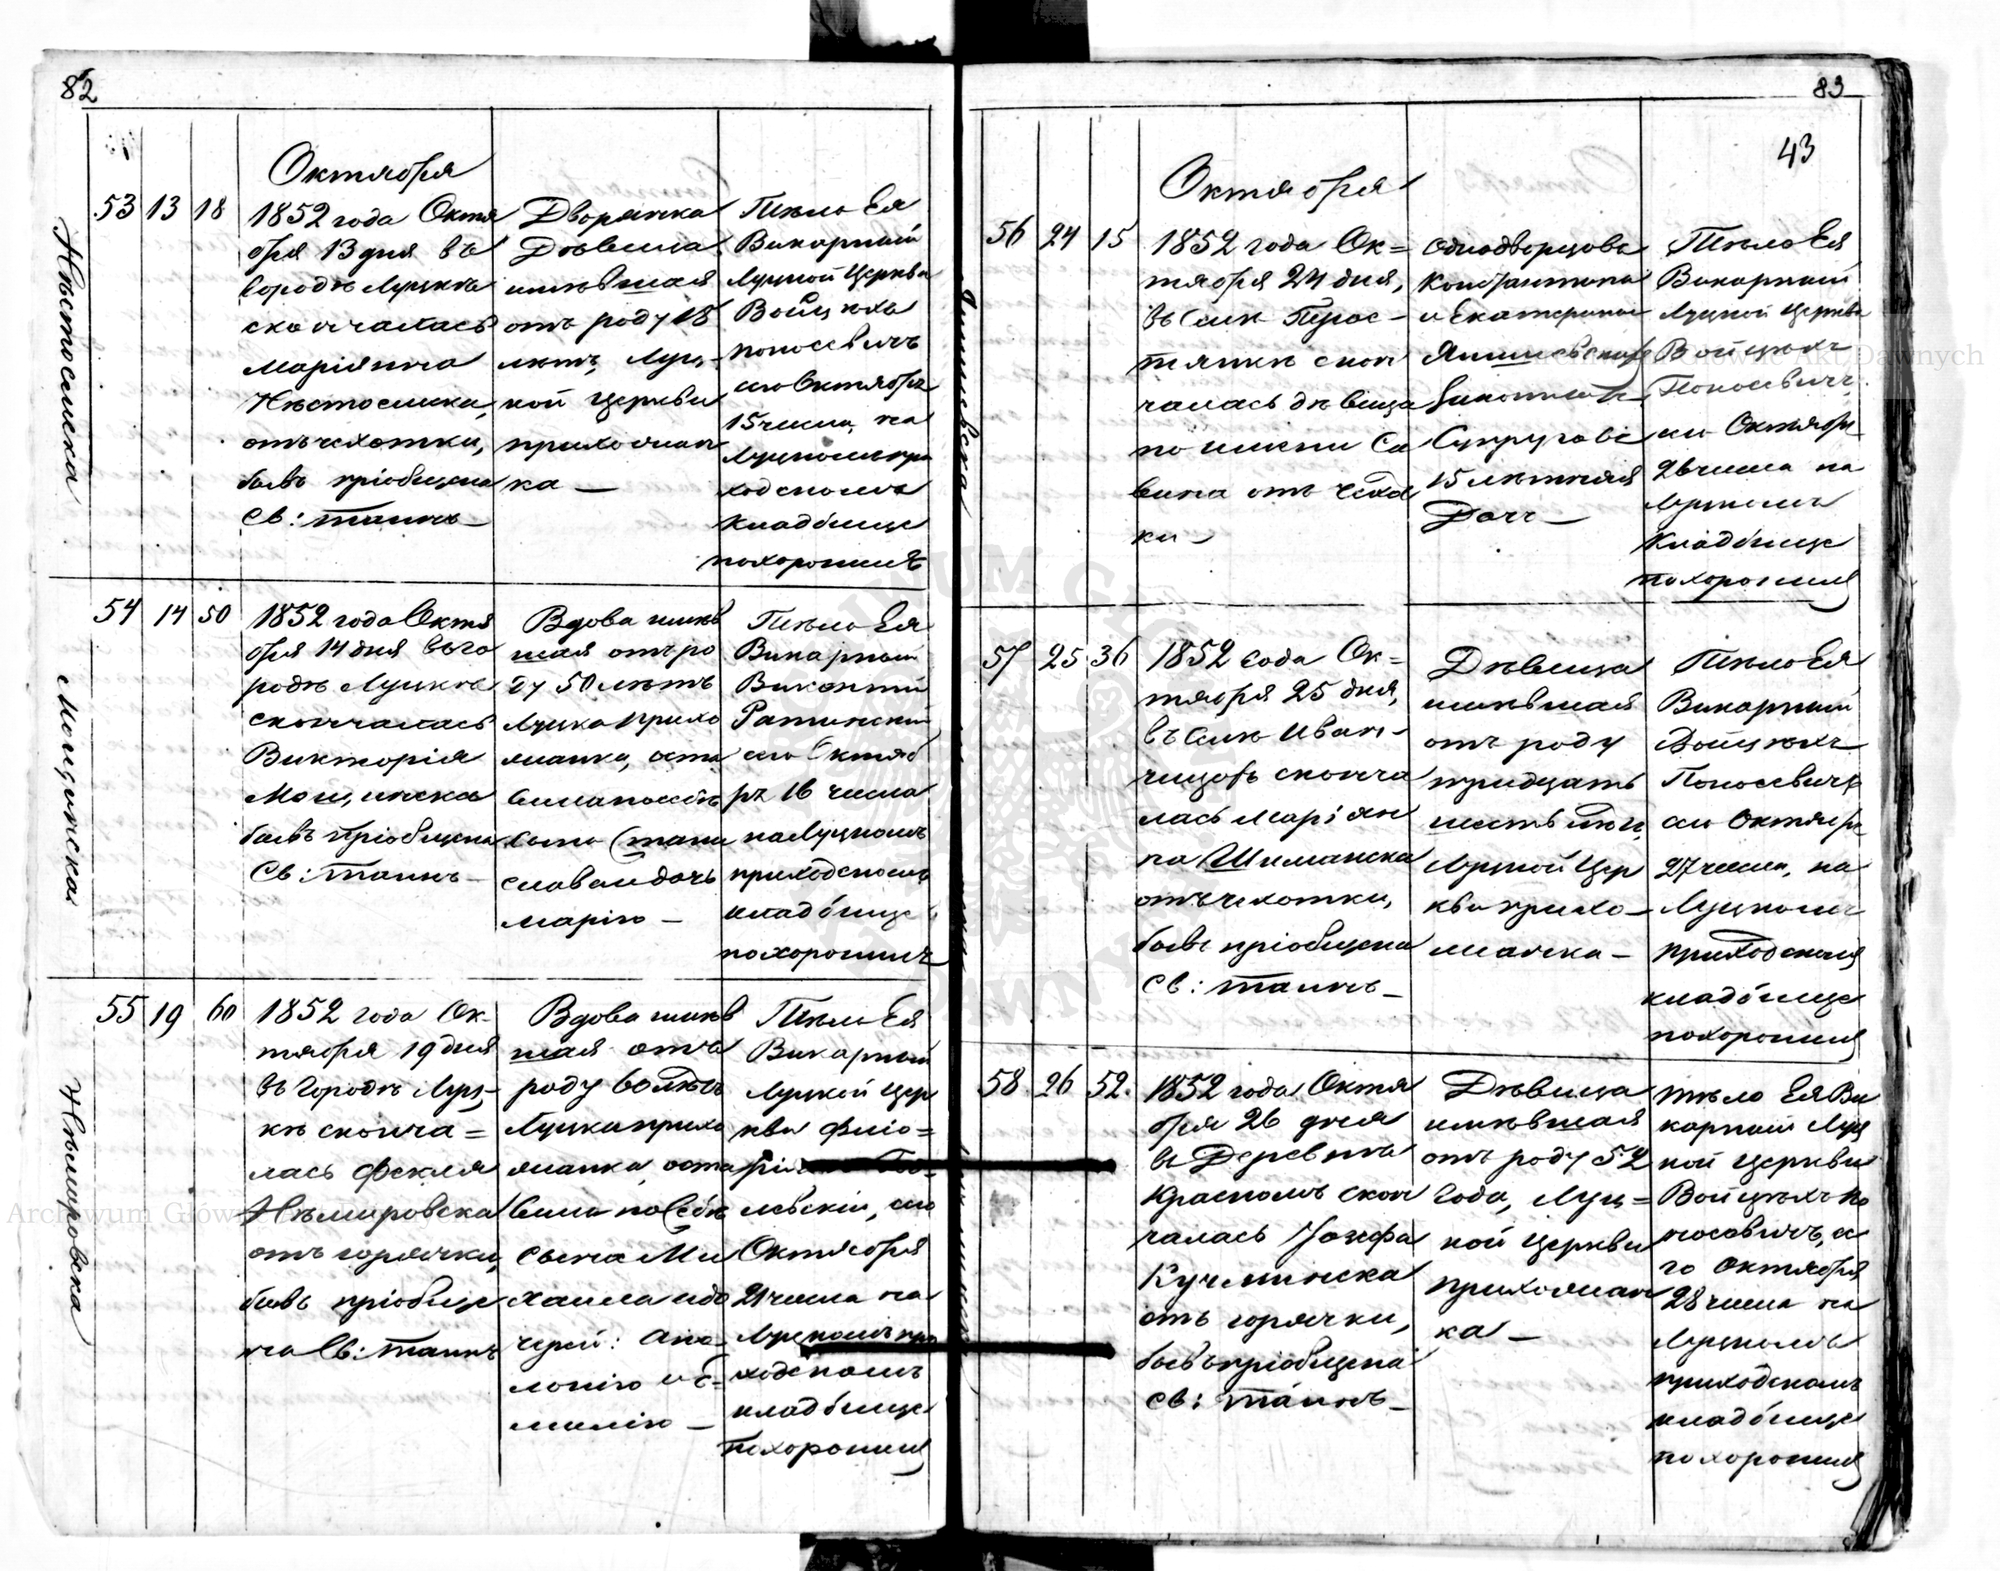 82
Октября
53 13 18
Нѣстоемска
1852 года Октя
бря 13 дня въ
городѣ Луцкѣ
скончалась
Маріянна
Нѣстоемска,
отъ чехотки,
бывъ пріобщена
Св: Таинъ
Дворянка
Дѣвица
имѣвшая
отъ роду 18
лѣтъ, Луц-
кой Церкви
прихожан
ка —
Тѣло Ея
Викарный
Луцкой Церкви
Войцѣхъ
сего Октября
15 числа, на
Луцкомъ при
ходскомъ
Кладбище
похоронилъ
54 14 50
1852 года Октя
бря 14 дня въ го
родѣ Луцкѣ
скончалась
Викторія
бывъ пріобщена
Св: Таинъ —
Вдова имѣв
шая отъ ро
ду 50 лѣтъ
Луцка прихо
жанка, оста
вила по себѣ
сына Стани
слава и дочь
Марію —
Тѣло Ея
Викарный
Викентій
Ратинскій
сего Октяб
ря 16 числа
на Луцкомъ
приходскомъ
кладбище
похоронилъ
55 19 60
Нѣмировска
1852 года Ок-
тября 19 дня
въ городѣ Луц-
кѣ сконча=
лась Фекля
Нѣмировска
отъ горячки,
бывъ пріобще
на Св: Таинъ
Вдова имѣв
шая отъ
роду 60 лѣтъ
Луцка прихо
жанка, оста
вила по себѣ
сына Ми
хаила и до
черей: Апо-
лонію и Е-
милію —
Тѣло Ея
Викарный
Луцкой Цер
кви Фло=
левскій, сего
Октября
21 числа на
Луцкомъ при
ходскомъ
кладбище
похоронилъ
83
43
Октября
56 24 15
1852 года Ок=
тября 24 дня,
въ селѣ Перес-
тянкѣ скон
чалась дѣвица
по имени Са
вина отъ чехот
ки —
Однодворцовъ
Константина
и Екатерины
Супруговъ
15 лѣтняя
Дочь —
Тѣло Ея
Викарный
Луцкой Церкви
Войцѣхъ
сего Октября
26 числа на
Луцкомъ
Кладбище
похоронилъ
57 25 36
1852 года Ок=
тября 25 дня,
въ селѣ Иван-
чицахъ сконча
лась Маріян
на Шиманска
отъ чехотки,
бывъ пріобщена
Св: Таинъ —
Дѣвица
имѣвшая
отъ роду
тридцать
шесть лѣтъ,
Луцкой Цер
кви прихо-
жанка —
Тѣло Ея
Викарный
Войцѣхъ
сего Октября
27 числа, на
Луцкомъ
приходскомъ
кладбище
похоронилъ
58 26 52.
1852 года Октя
бря 26 дня
въ Деревнѣ
Красномъ скон
чалась Іозефа
Кучминска
отъ горячки,
бывъ пріобщена
Св: Таинъ —
Дѣвица
имѣвшая
отъ роду 52
года, Луц=
кой Церкви
прихожан
ка —
Тѣло Ея Ви
карный Луц
кой Церкви
Войцѣхъ
го Октября
28 числа на
Луцкомъ
приходскомъ
кладбище
похоронилъ